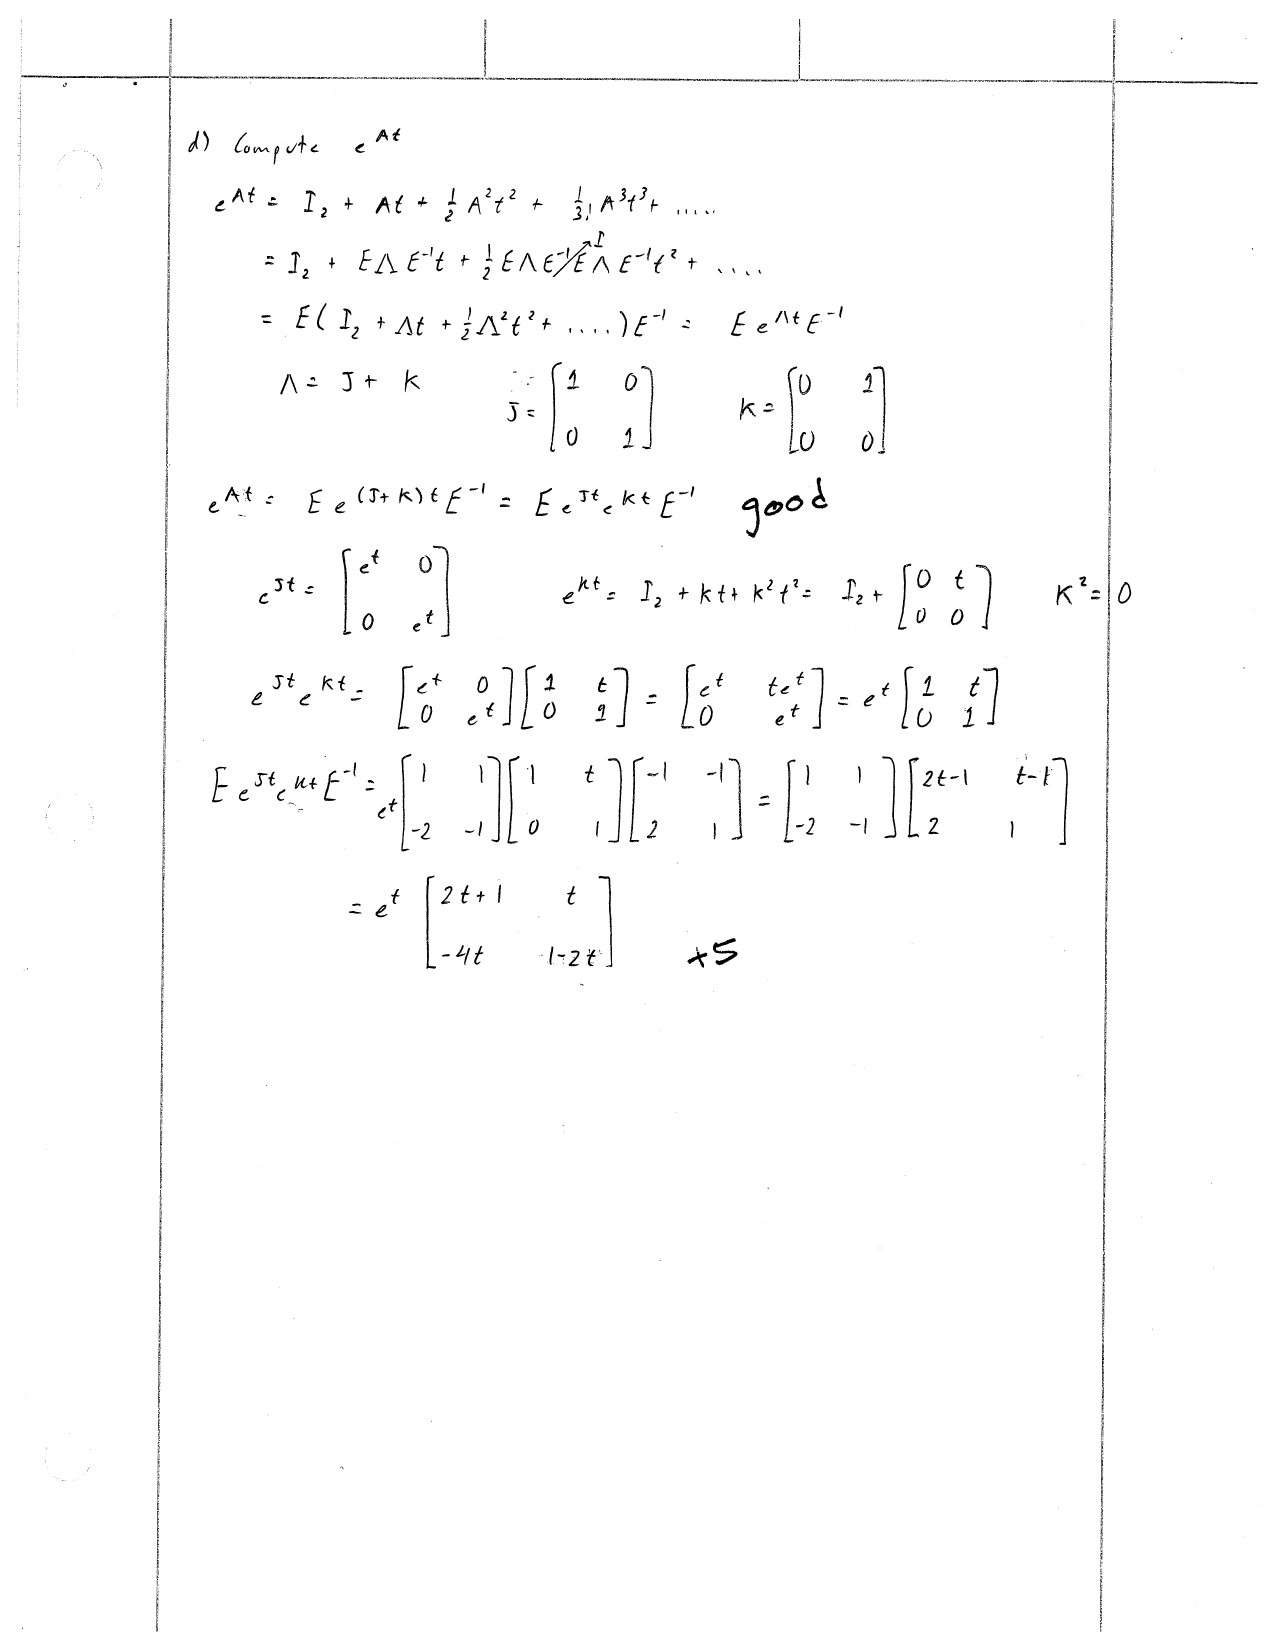 d) Compute e^{At}
e^{At} = I₂ + At + ½ A²t² + 1/3! A³t³ + .....
= I₂ + EΛE⁻¹t + ½ EΛE⁻¹EΛE⁻¹t² + .... I
= E( I₂ + Λt + ½Λ²t² + ....)E⁻¹ = E e^{Λt} E⁻¹
Λ = J + K J = [1 0; 0 1] K = [0 1; 0 0]
e^{At} = E e^{(J+K)t} E⁻¹ = E e^{Jt} e^{Kt} E⁻¹ good
e^{Jt} = [e^t 0; 0 e^t] e^{Kt} = I₂ + Kt + K²t² = I₂ + [0 t; 0 0] K² = 0
e^{Jt} e^{Kt} = [e^t 0; 0 e^t][1 t; 0 1] = [e^t te^t; 0 e^t] = e^t [1 t; 0 1]
E e^{Jt} e^{Kt} E⁻¹ = e^t [1 1; -2 -1][1 t; 0 1][-1 -1; 2 1] = [1 1; -2 -1][2t-1 t-1; 2 1]
= e^t [2t+1 t; -4t 1-2t] +5